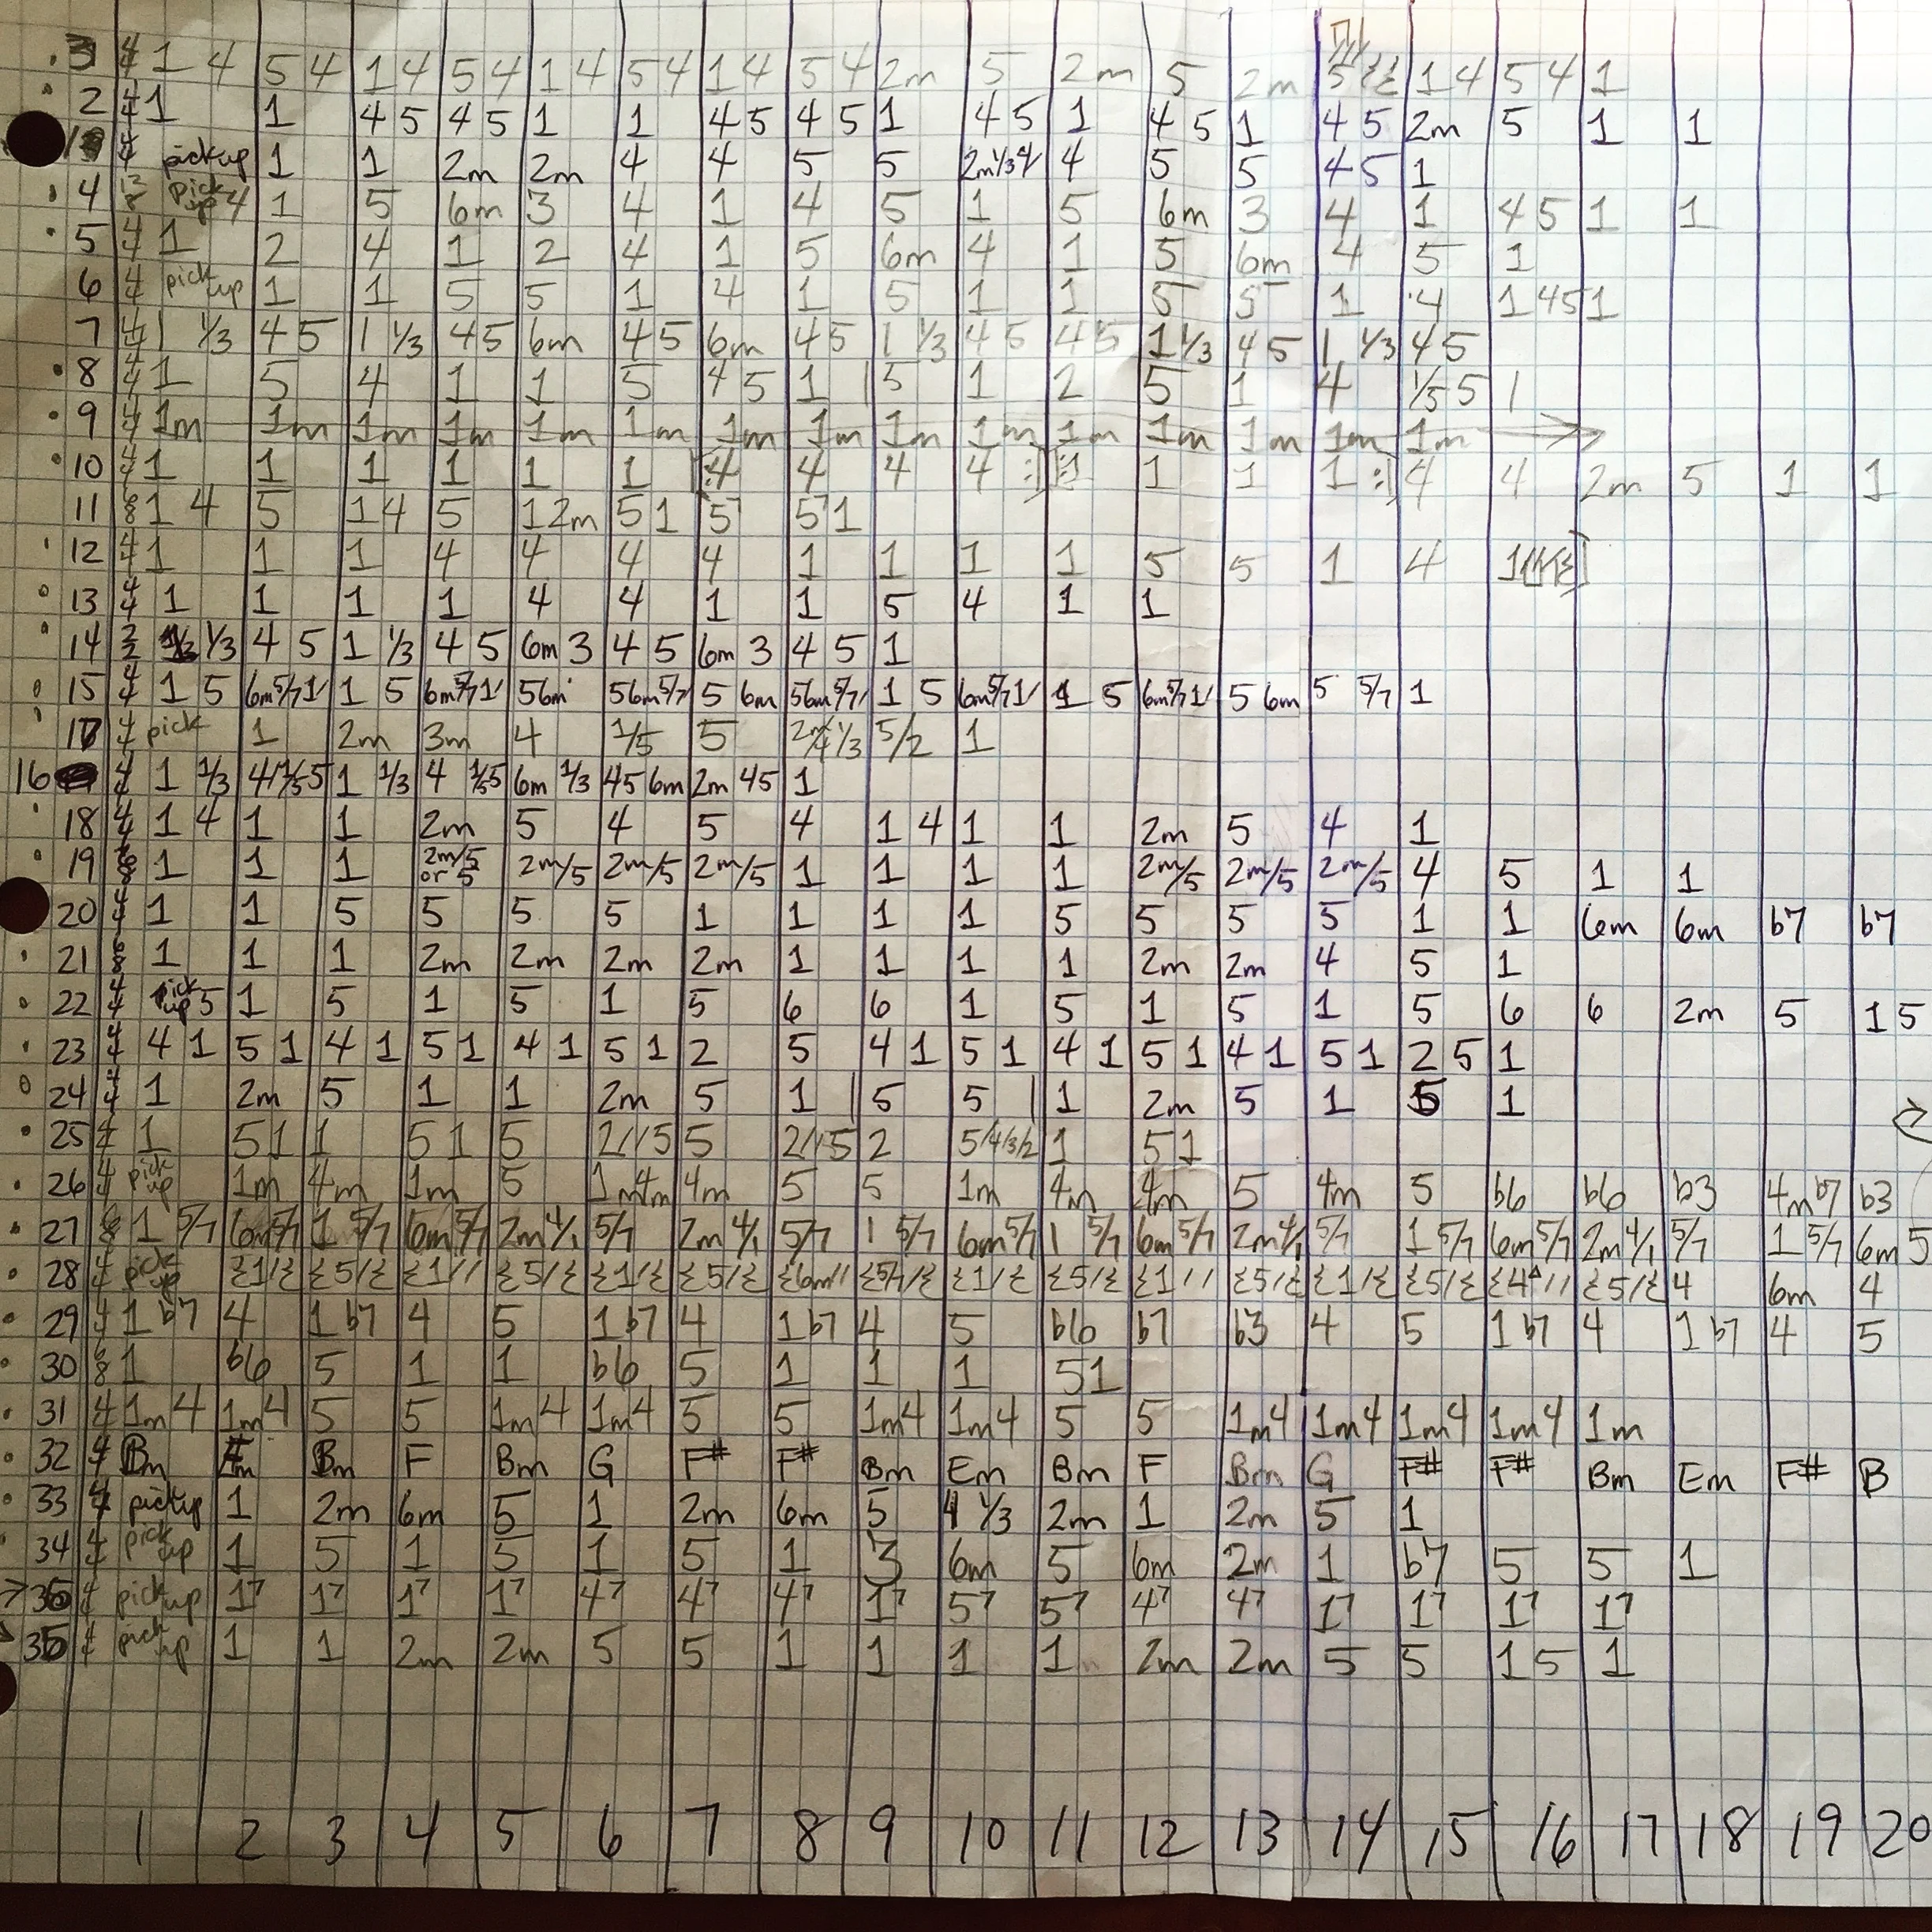 3 4/4 1 4 5 4 1 4 5 4 1 4 5 4 1 4 5 4 2m 5 2m 5 2m 5 1 4 5 4 1
2 4/4 1 1 4 5 4 5 1 1 4 5 4 5 1 4 5 1 4 5 1 4 5 2m 5 1 1
1 4/4 pickup 1 1 2m 2m 4 4 5 5 2m 1/3 4/ 4 5 5 4 5 1
4 12/8 pick up 4 1 5 6m 3 4 1 4 5 1 5 6m 3 4 1 4 5 1 1
5 4/4 1 2 4 1 2 4 1 5 6m 4 1 5 6m 4 5 1
6 4/4 pick up 1 1 5 5 1 4 1 5 1 1 5 5 1 4 1 4 5 1
7 4/4 1 1/3 4 5 1 1/3 4 5 6m 4 5 6m 4 5 1 1/3 4 5 4 5 1 1/3 4 5 1 1/3 4 5
8 4/4 1 5 4 1 1 5 4 5 1 | 5 1 2 5 1 4 1/5 5 1
9 4/4 1m 1m 1m 1m 1m 1m 1m 1m 1m 1m 1m 1m 1m 1m 1m →
10 4/4 1 1 1 1 1 1 [: 4 4 4 4 :] [: 1 1 1 1 :] 4 4 2m 5 1 1
11 6/8 1 4 5 1 4 5 1 2m 5 1 5 5 1
12 4/4 1 1 1 4 4 4 4 1 1 1 1 5 5 1 4 1
13 4/4 1 1 1 1 4 4 1 1 5 4 1 1
14 2/2 1/3 4 5 1 1/3 4 5 6m 3 4 5 6m 3 4 5 1
15 4/4 1 5 6m 5/7 1/ 1 5 6m 5/7 1/ 5 6m 5 6m 5/7 5 6m 5 6m 5/7/ 1 5 6m 5/7 1/ 1 5 6m 5/7 1/ 5 6m 5 5/7 1
17 4/4 pick 1 2m 3m 4 1/5 5 1/3 5/2 1
16 4/4 1 1/3 4/ 1/5 5 1 1/3 4 1/5 5 6m 1/3 4 5 6m 2m 4 5 1
18 4/4 1 4 1 1 2m 5 4 5 4 1 4 1 1 2m 5 4 1
19 6/8 1 1 1 2m/5 or 5 2m/5 2m/5 2m/5 1 1 1 1 2m/5 2m/5 2m/5 4 5 1 1
20 4/4 1 1 5 5 5 5 1 1 1 1 5 5 5 5 1 1 6m 6m b7 b7
21 6/8 1 1 1 2m 2m 2m 2m 1 1 1 1 2m 2m 4 5 1
22 4/4 pick up 5 1 5 1 5 1 5 6 6 1 5 1 5 1 5 6 6 2m 5 1 5
23 4/4 4 1 5 1 4 1 5 1 4 1 5 1 2 5 4 1 5 1 4 1 5 1 4 1 5 1 2 5 1
24 4/4 1 2m 5 1 1 2m 5 1 | 5 5 | 1 2m 5 1 5 1
25 4/4 1 5 1 1 5 1 5 2///5 5 2///5 2 5/4/3/2 1 5 1
26 4/4 pick up 1m 4m 1m 5 1m 4m 4m 5 5 1m 4m 4m 5 4m 5 b6 b6 b3 4m b7 b3
27 6/8 1 5/7 6m 5/7 1 5/7 6m 5/7 2m 4/1 5/7 2m 4/1 5/7 1 5/7 6m 5/7 1 5/7 6m 5/7 2m 4/1 5/7 1 5/7 6m 5/7 2m 4/1 5/7 1 5/7 6m 5
28 4/4 pick up 𝄽1/𝄽 𝄽5/𝄽 𝄽1// 𝄽5/𝄽 𝄽1/𝄽 𝄽5/𝄽 𝄽6m// 𝄽5/7/𝄽 𝄽1/𝄽 𝄽5/𝄽 𝄽1// 𝄽5/𝄽 𝄽1/𝄽 𝄽5/𝄽 𝄽4△// 𝄽5/𝄽 4 6m 4
29 4/4 1 b7 4 1 b7 4 5 1 b7 4 1 b7 4 5 b6 b7 b3 4 5 1 b7 4 1 b7 4 5
30 6/8 1 b6 5 1 1 b6 5 1 1 1 5 1
31 4/4 1m 4 1m 4 5 5 1m 4 1m 4 5 5 1m 4 1m 4 5 5 1m 4 1m 4 1m 4 1m 4 1m
32 4/4 Bm Em Bm F Bm G F# F# Bm Em Bm F Bm G F# F# Bm Em F# B
33 4/4 pickup 1 2m 6m 5 1 2m 6m 5 1/3 2m 1 2m 5 1
34 4/4 pick up 1 5 1 5 1 5 1 3 6m 5 6m 2m 1 b7 5 5 1
36 4/4 pick up 17 17 17 17 47 47 47 17 57 57 47 47 17 17 17 17
35 4/4 pick up 1 1 2m 2m 5 5 1 1 1 1 2m 2m 5 5 1 5 1
1 2 3 4 5 6 7 8 9 10 11 12 13 14 15 16 17 18 19 20